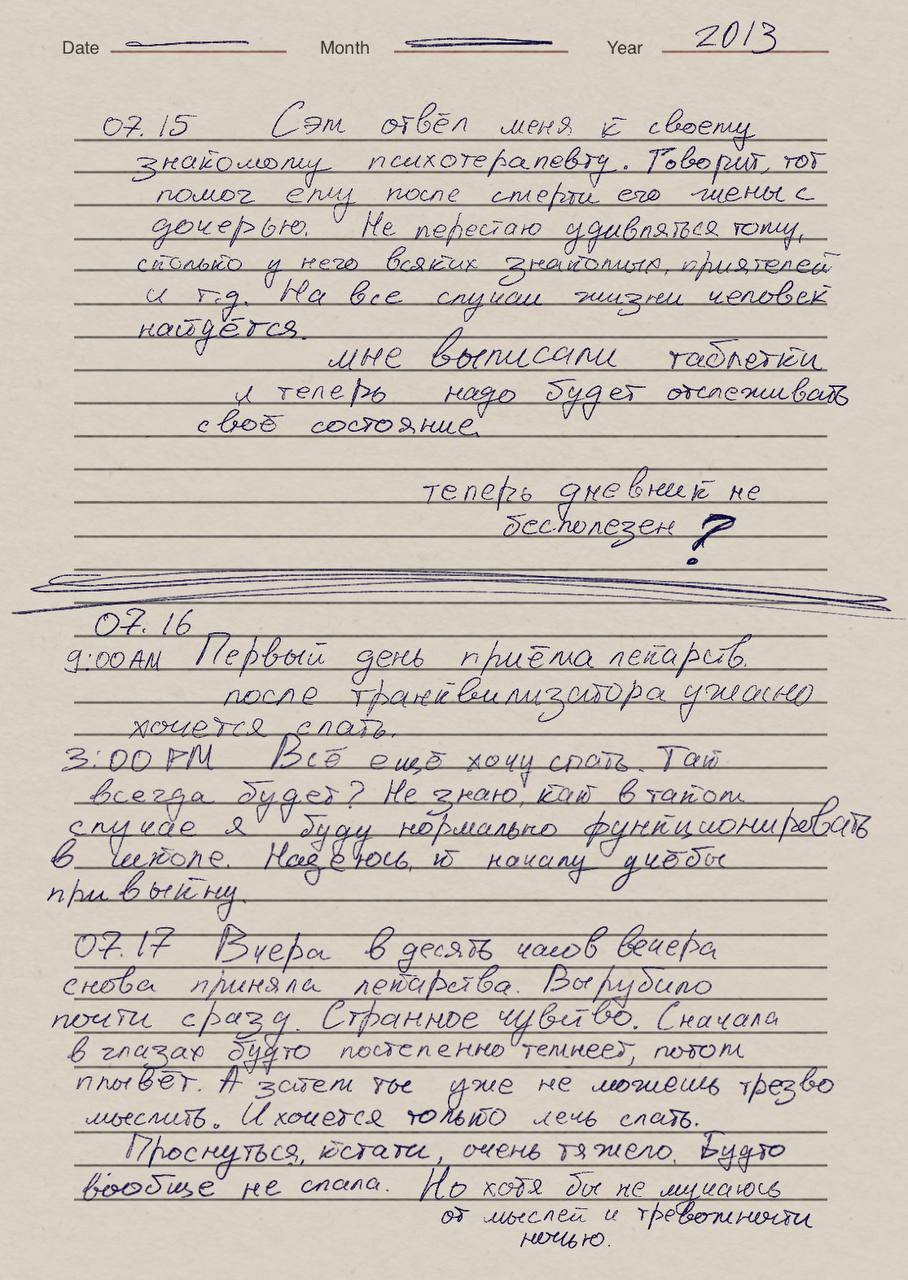 Date Month Year 2013
07.15 Сэт отвёл меня к своему
знакомому психотерапевту. Говорит, тот
помог ему после смерти его жены с
дочерью. Не перестаю удивляться тому,
сколько у него всяких знакомых, приятелей
и т.д. На все случаи жизни человек
найдётся.
мне выписали таблетки
и теперь надо будет отслеживать
своё состояние.
теперь дневник не
бесполезен?
07.16
9:00 AM Первый день приёма лекарств.
после транквилизатора ужасно
хочется спать.
3:00 PM Всё ещё хочу спать. Так
всегда будет? Не знаю, как в таком
случае я буду нормально функционировать
в школе. Надеюсь, к началу учёбы
привыкну.
07.17 Вчера в десять часов вечера
снова приняла лекарства. Вырубило
почти сразу. Странное чувство. Сначала
в глазах будто постепенно темнеет, потом
плывёт. А затем ты уже не можешь трезво
мыслить. И хочется только лечь спать.
Проснуться, кстати, очень тяжело. Будто
вообще не спала. Но хотя бы не мучаюсь
от мыслей и тревожности
ночью.